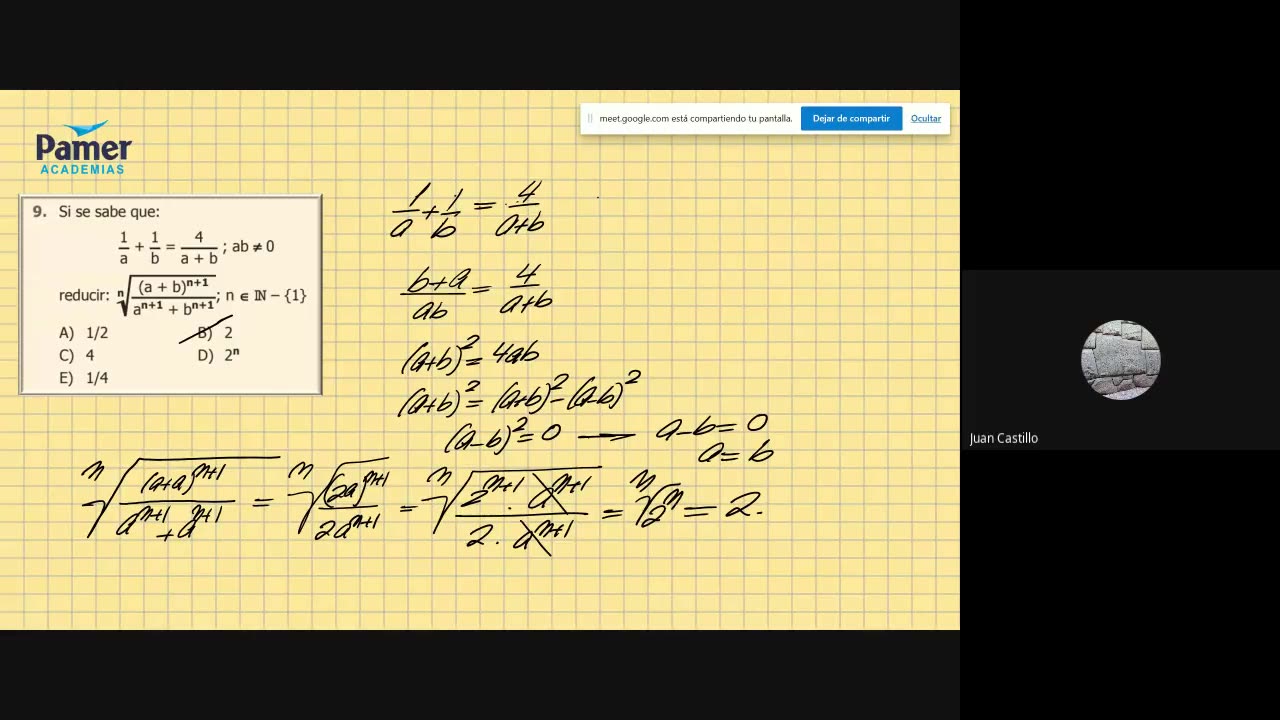 meet.google.com está compartiendo tu pantalla. Dejar de compartir Ocultar
Pamer
ACADEMIAS
9. Si se sabe que:
1/a + 1/b = 4/(a + b) ; ab ≠ 0
reducir: ⁿ√((a + b)ⁿ⁺¹/(aⁿ⁺¹ + bⁿ⁺¹)); n ∈ ℕ − {1}
A) 1/2 B) 2
C) 4 D) 2ⁿ
E) 1/4
1/a + 1/b = 4/(a+b)
(b+a)/ab = 4/(a+b)
(a+b)² = 4ab
(a+b)² = (a+b)² − (a−b)²
(a−b)² = 0 — a−b = 0
a = b
ⁿ√((a+a)ⁿ⁺¹/(aⁿ⁺¹ + aⁿ⁺¹)) = ⁿ√((2a)ⁿ⁺¹/2aⁿ⁺¹) = ⁿ√(2ⁿ⁺¹ . aⁿ⁺¹/2 . aⁿ⁺¹) = ⁿ√2ⁿ = 2.
Juan Castillo